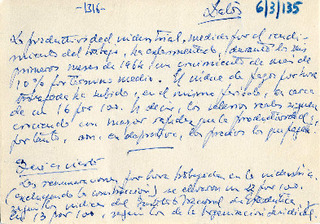 -1316-
Datos
6/3/135
La productividad industrial, medida por el rendi-
miento del trabajo, ha experimentado, durante los seis
primeros meses de 1966 un crecimiento de más de
10% por término medio. El índice de pagos por hora
trabajada ha subido, en el mismo período, la cerca
de un 16 por 100. Es decir, los salarios reales siguen
creciendo con mayor rapidez que la productividad y,
por tanto, son, en definitiva, los precios los que
Las remuneraciones por hora trabajada en la industria
(excluyendo la construcción) se elevaron un por 100.
según los índices del Instituto Nacional de Estadística
un 13 por 100, según los de la Organización Sindical